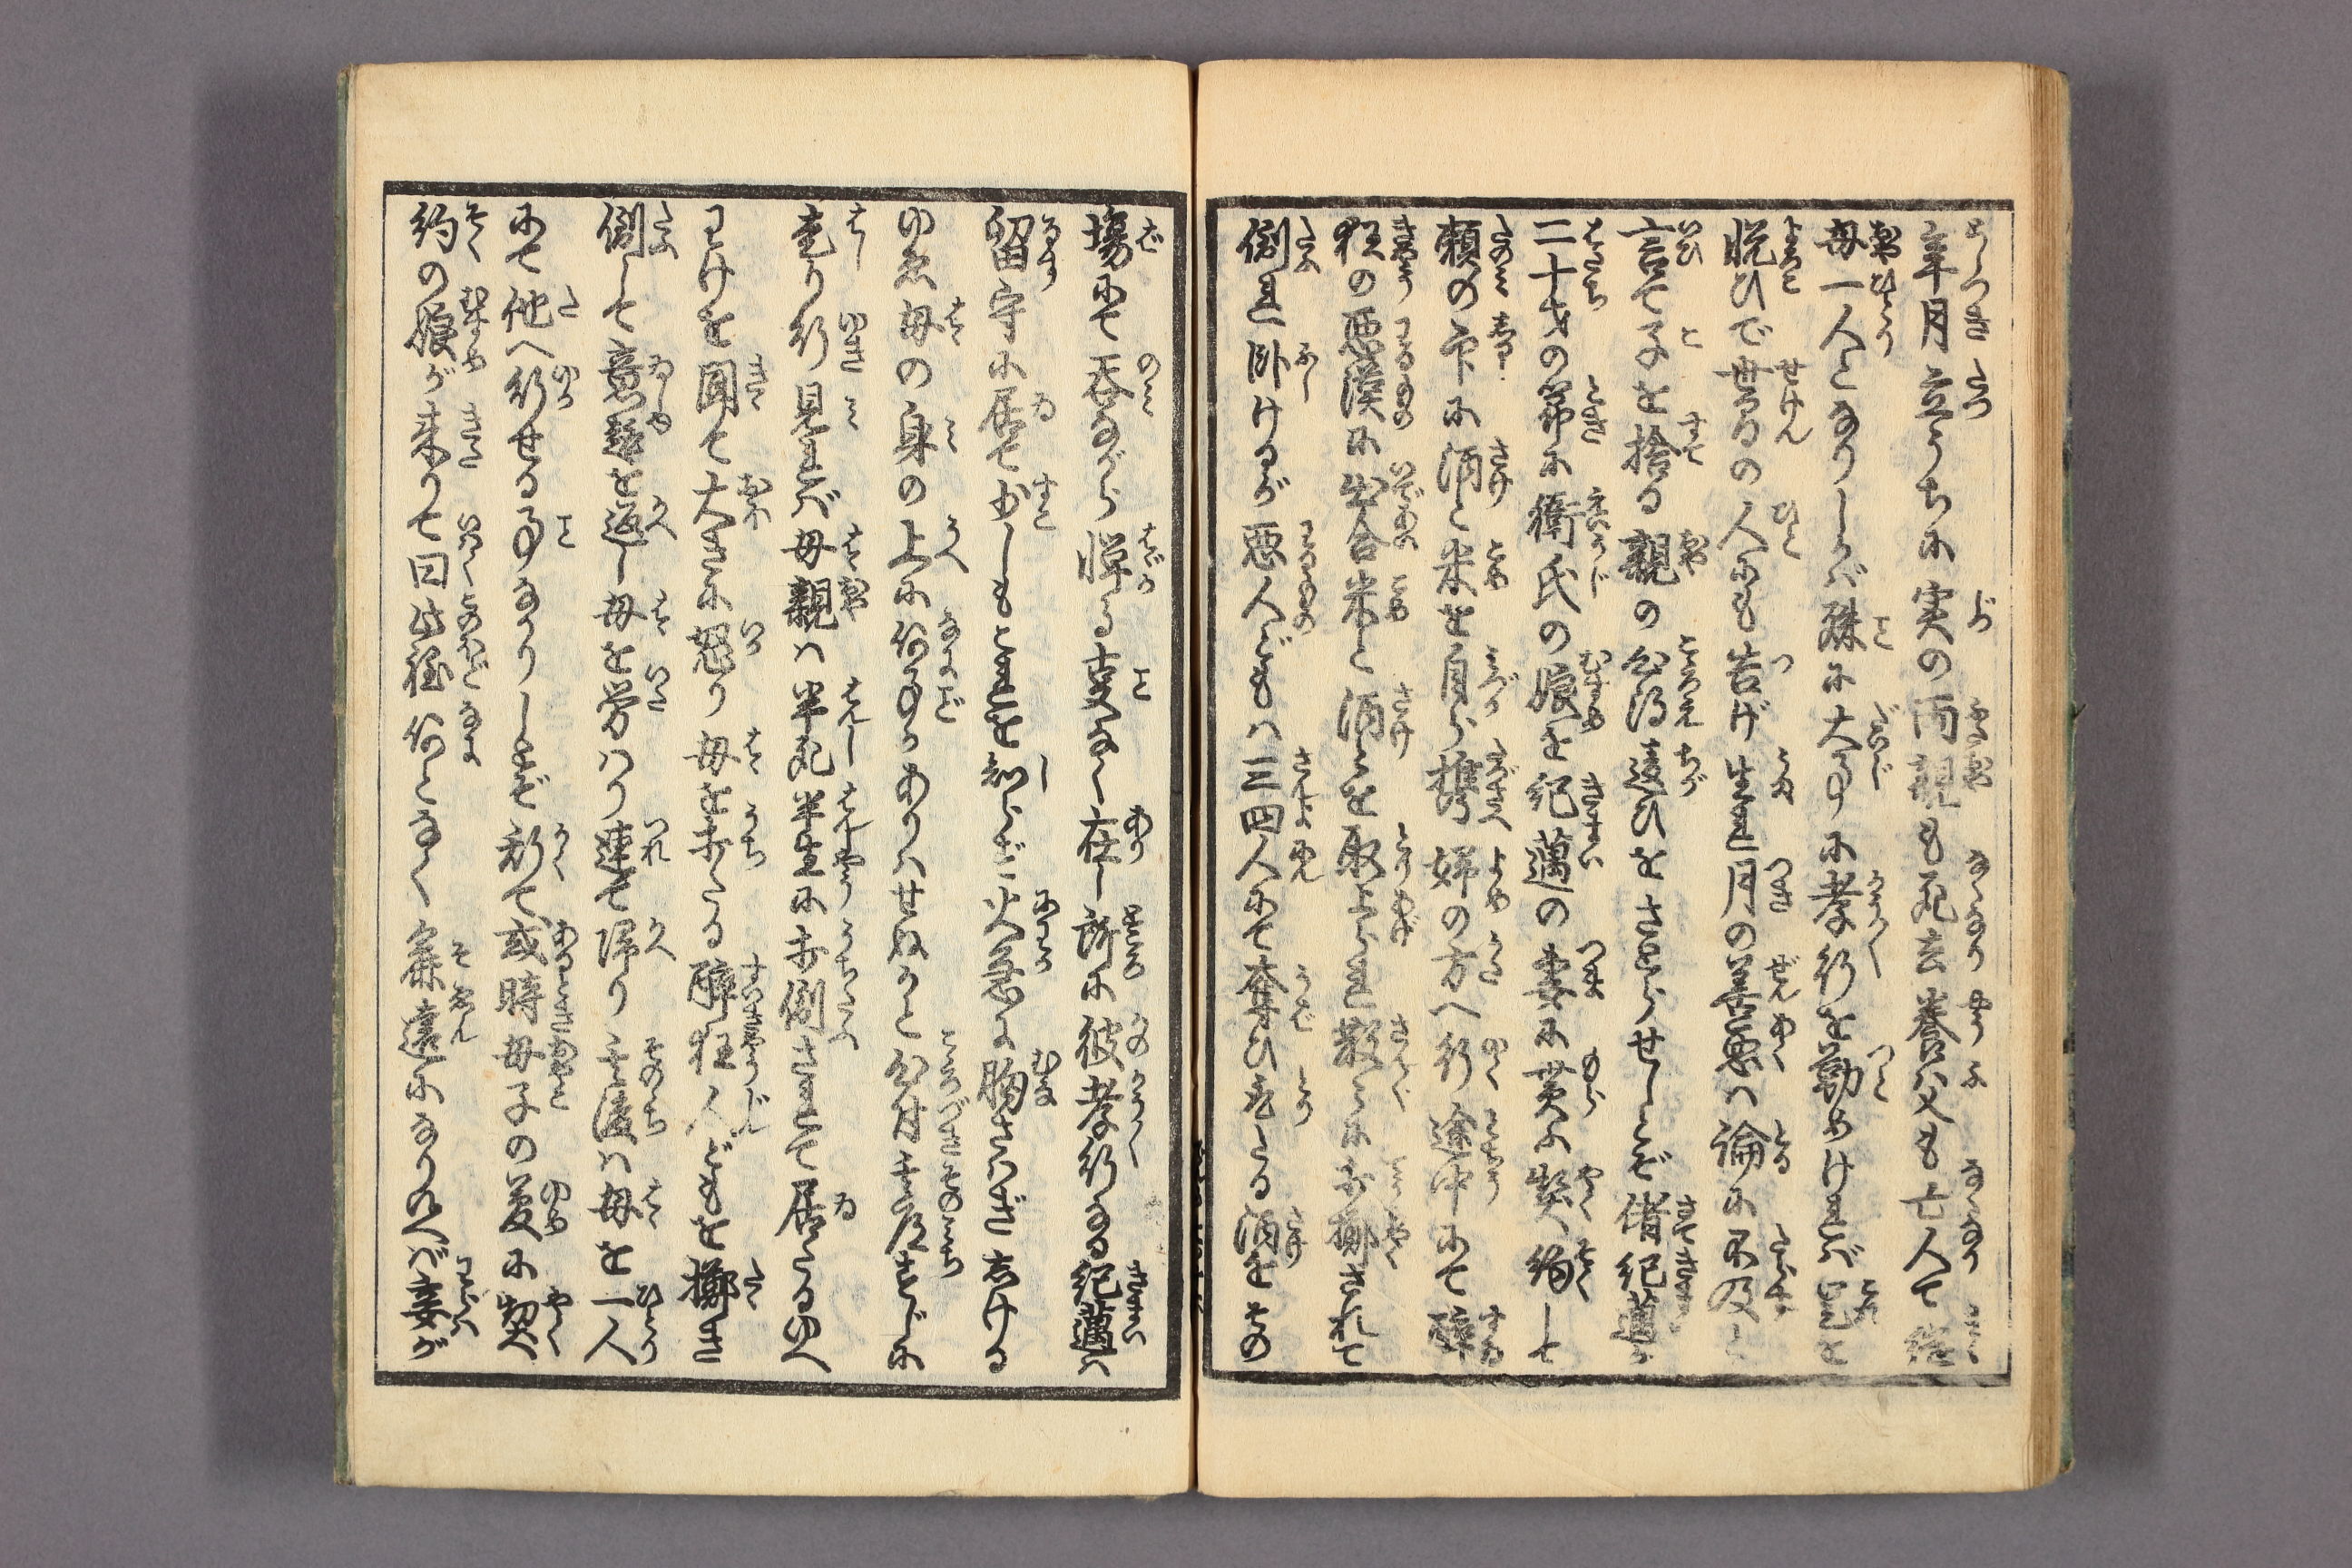 年月立うちに実の両親も死去養父も亡人て継
母一人となりしかば殊に大事に孝行を勤めけれバ是を
悦ひで世間の人にも告げ生れ月の善悪ハ論に不及と
言て子を捨る親の心得違ひをさとらせしとぞ偖紀邁
二十才の節に衛氏の娘を紀邁の妻に貰ハ契約して
頼の印に酒と米を自ら携婦の方へ行途中にて酔
狂の悪漢に出合米と酒とを取上られ散々に打擲されて
倒れ臥けるが悪人どもハ三四人にて奪ひ取たる酒をその
場にて呑ながら惮る事なし在し所に彼孝行なる紀邁ハ
留守に居て少しもこれを知らざれ火急に胸さわぎしける
ゆゑ母の身の上に何事かありハせぬかと心付其座さびに
走り行見れバ母親ハ半死半生に打倒されて居たるゆへ
わけを聞て大きに怒り母を打たる酔狂人どもを擲き
倒して意趣を返し母を労ハり連て帰り其後ハ母を一人
にて他へ行せる事なかりしとぞ斯て或時母子の爰に契
約の娘が来りて曰此程何となく疎遠になりぬれバ妾が